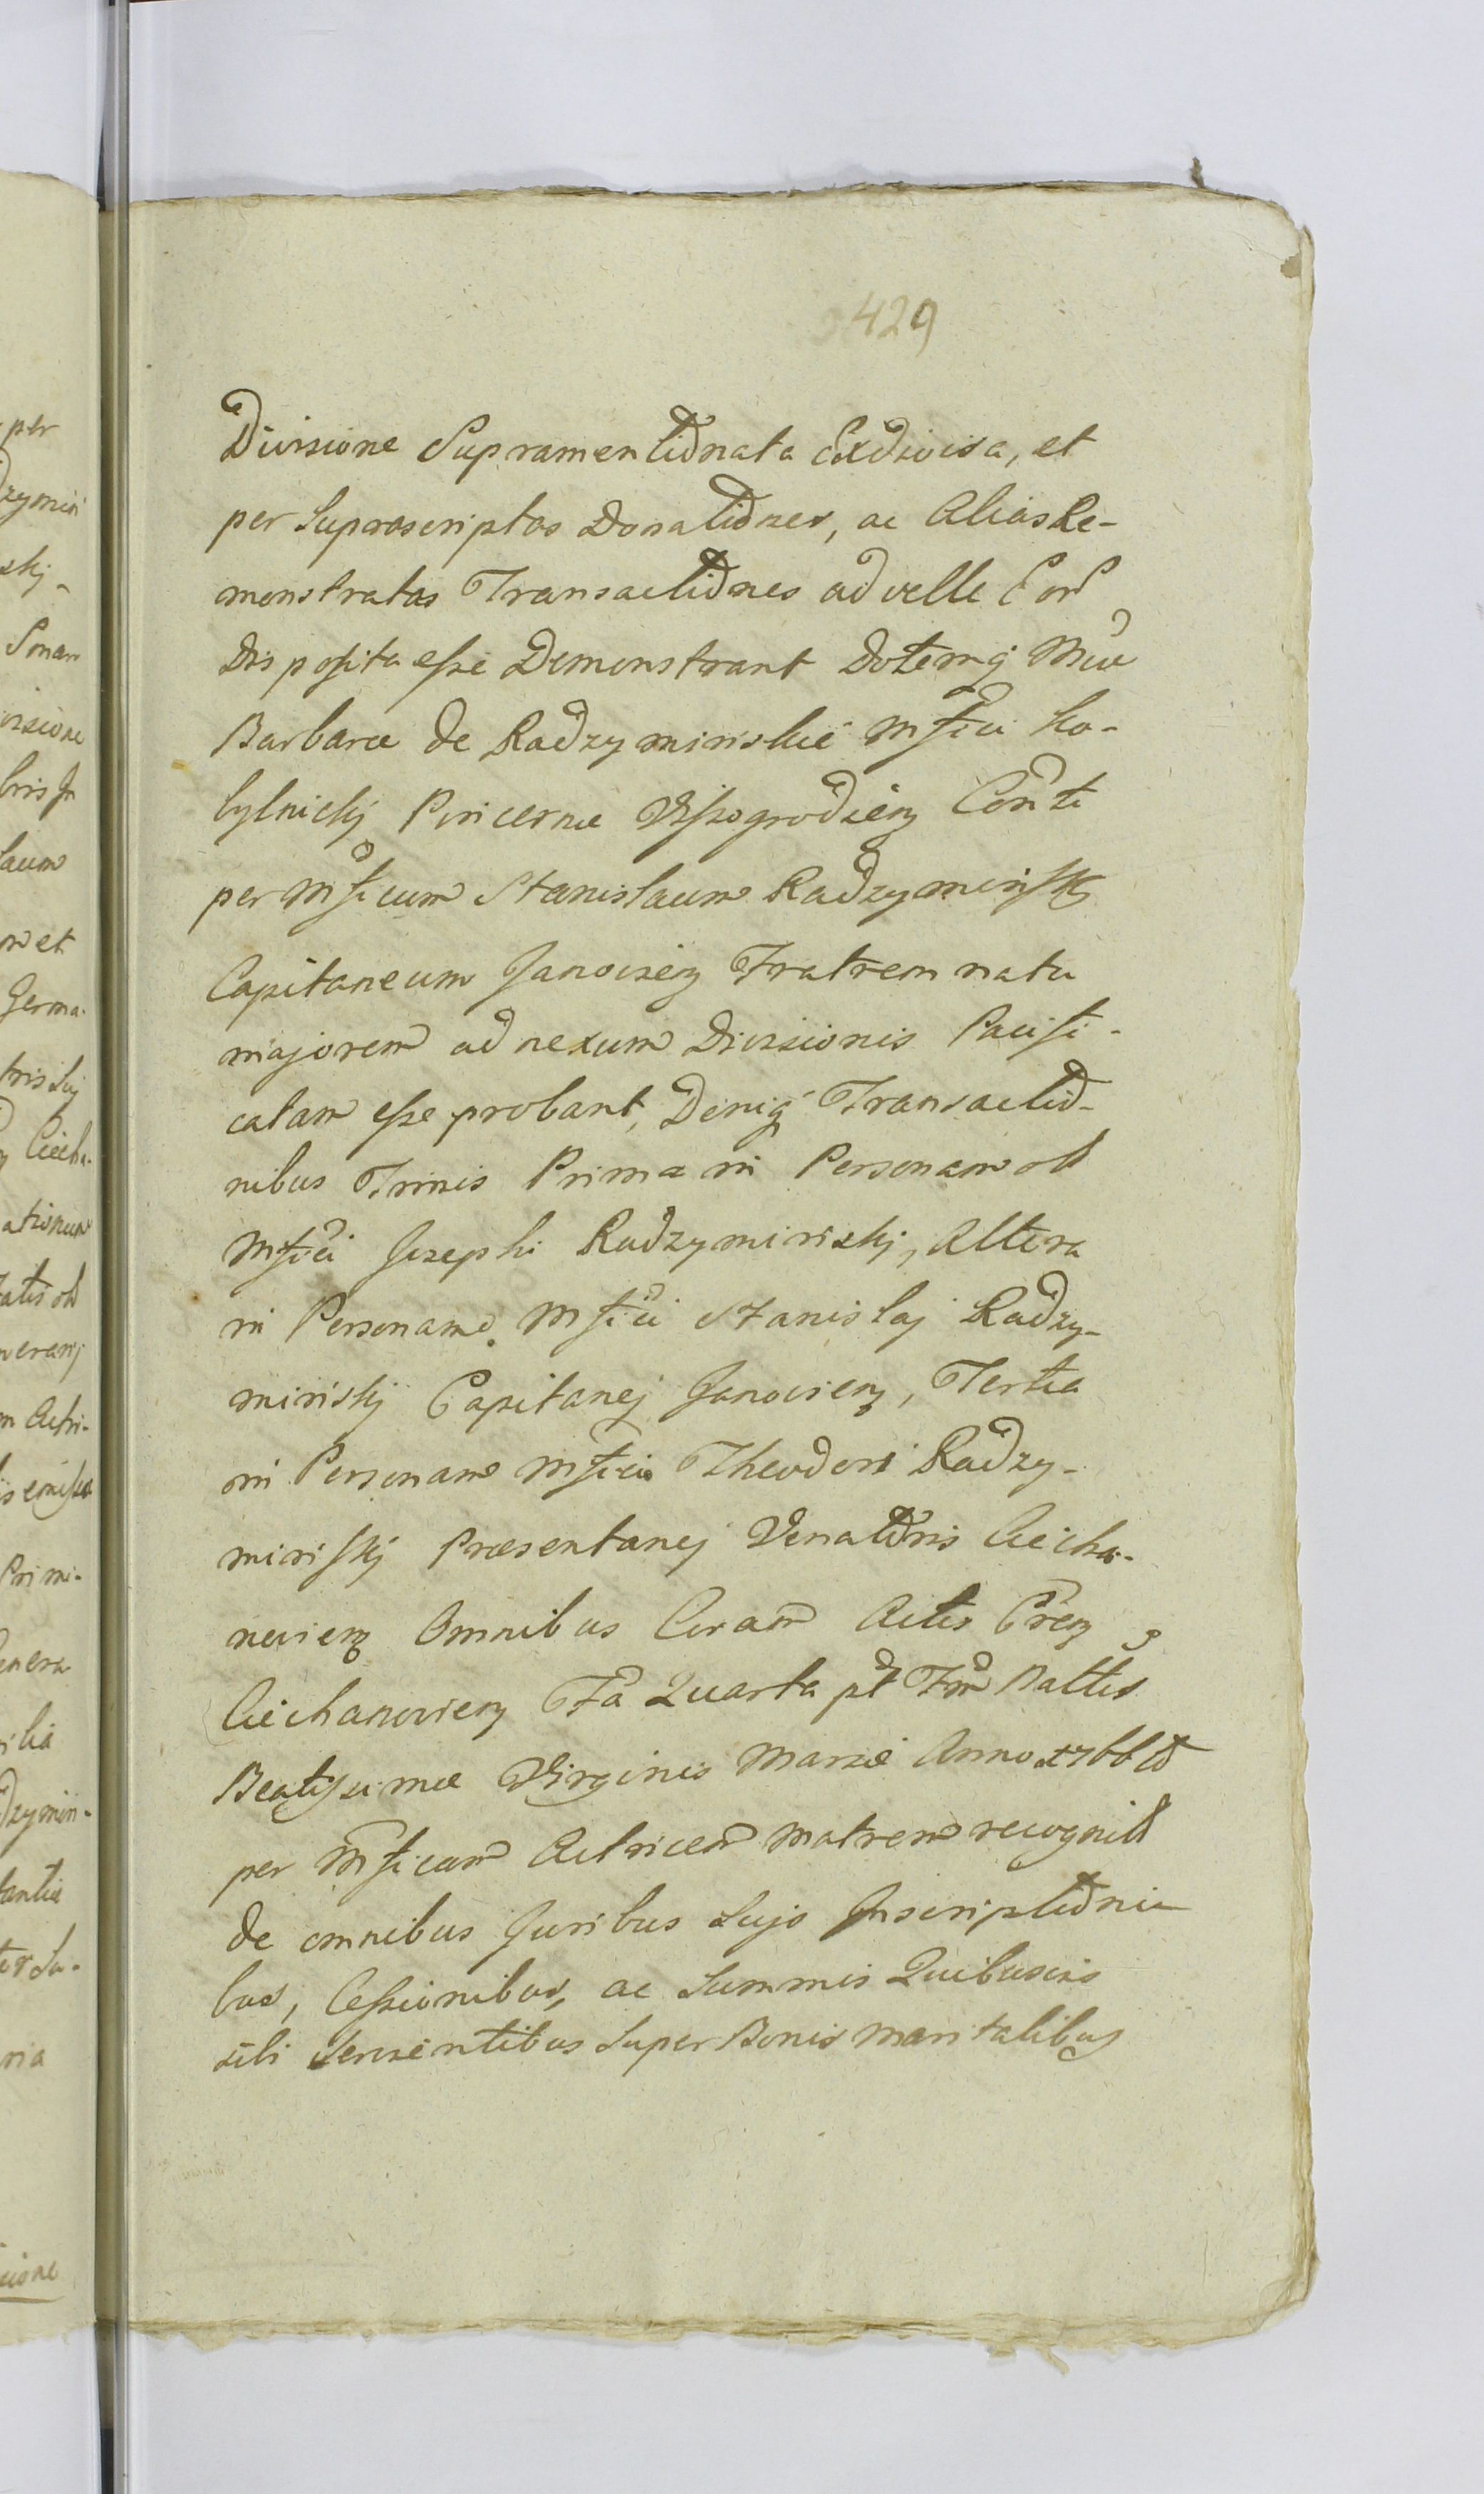 429
Divisione Supramentionata Exdivisa, et
per Suprascriptas Donationes, ac Alias Re-
monstratas Transactiones ad velle Eor
disposita esse Demonstrant Dotemq Mcae
Barbarae de Radzyminskie Mfici Ko-
bylnickj Pincernae Wyszogrodien Consti
per Mficum Stanislaum Radzyminskj
Capitaneum Janovien Fratrem natu
majorem ad nexum Divisionis Pacifi-
catam esse probant, Deniq Transactio-
nibus Trinis Prima in Personam olim
Mfici Josephi Radzyminskj, Altera
in Personam Mfici Stanislaj Radzy-
minskj Capitanej Janovien, Tertia
in Personam Mfici Theodori Radzy-
minskj Praesentanej Venatoris Ciecha-
novien Omnibus Coram Actis Cren
Ciechanovien Fa Quarta pt Fm Nattis
Beatissimae Virginis Mariae Anno 1766to
per Mficam Actricem Matrem recognit
de omnibus Juribus Sujs Inscriptioni-
bus, Cessionibus, ac Summis Quibusvis
sibi Servientibus Super Bonis Maritalibus
per
Sman
visione
laum
et
Germa-
Ciecha-
Actri-
Primi-